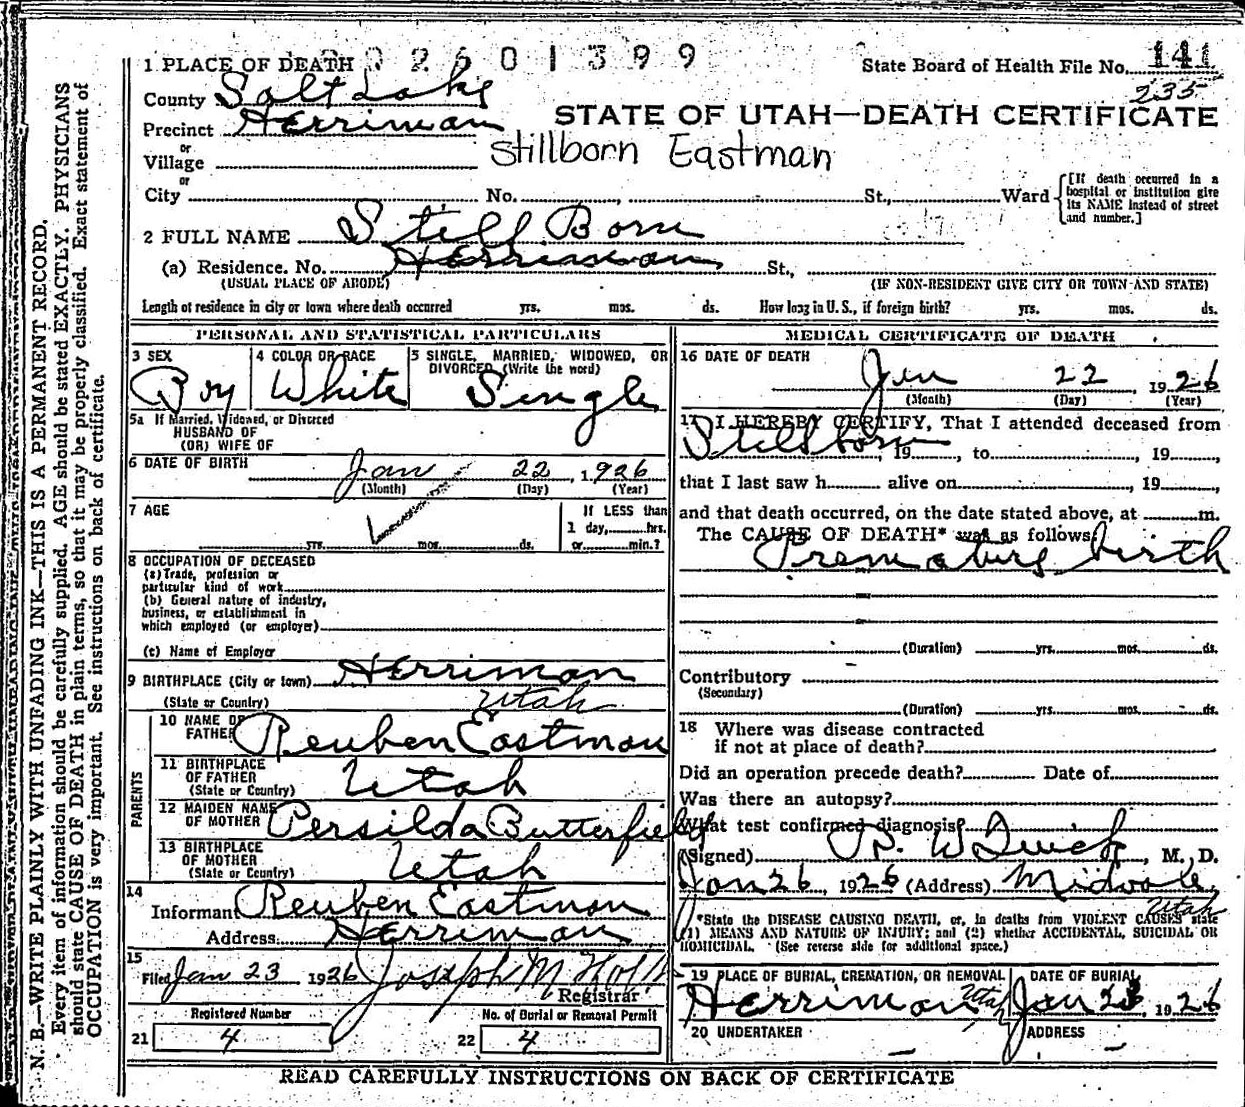 1 PLACE OF DEATH 2601399
State Board of Health File No. 141
235
County Salt Lake
STATE OF UTAH—DEATH CERTIFICATE
Precinct Herriman
or
Village
Stillborn Eastman
or
City No. , St., Ward
[If death occurred in a hospital or institution give its NAME instead of street and number.]
2 FULL NAME Still Born
(a) Residence. No. Herriman St.,
(USUAL PLACE OF ABODE) (IF NON-RESIDENT GIVE CITY OR TOWN AND STATE)
Length of residence in city or town where death occurred yrs. mos. ds. How long in U. S., if foreign birth? yrs. mos. ds.
PERSONAL AND STATISTICAL PARTICULARS
3 SEX
Boy
4 COLOR OR RACE
White
5 SINGLE, MARRIED, WIDOWED, OR
DIVORCED (Write the word)
Single
5a If Married, Widowed, or Divorced
HUSBAND OF
(OR) WIFE OF
6 DATE OF BIRTH
Jan 22, 1926
(Month) (Day) (Year)
7 AGE
yrs. mos. ds.
If LESS than
1 day, hrs.
or min.?
8 OCCUPATION OF DECEASED
(a) Trade, profession or
particular kind of work
(b) General nature of industry,
business, or establishment in
which employed (or employer)
(c) Name of Employer
9 BIRTHPLACE (City or town) Herriman
(State or Country) Utah
PARENTS
10 NAME OF
FATHER Reuben Eastman
11 BIRTHPLACE
OF FATHER
(State or Country) Utah
12 MAIDEN NAME
OF MOTHER Persilda Butterfield
13 BIRTHPLACE
OF MOTHER
(State or Country) Utah
14
Informant Reuben Eastman
Address Herriman
15
Filed Jan 23 1926 Joseph M
Registrar
Registered Number
21 4
No. of Burial or Removal Permit
22 4
MEDICAL CERTIFICATE OF DEATH
16 DATE OF DEATH
Jan 22, 1926
(Month) (Day) (Year)
17 I HEREBY CERTIFY, That I attended deceased from
Stillborn, 19, to, 19,
that I last saw h alive on, 19,
and that death occurred, on the date stated above, at m.
The CAUSE OF DEATH* was as follows
Premature birth
(Duration) yrs. mos. ds.
Contributory
(Secondary)
(Duration) yrs. mos. ds.
18 Where was disease contracted
if not at place of death?
Did an operation precede death? Date of
Was there an autopsy?
What test confirmed diagnosis?
(Signed) , M. D.
Jan 26, 1926 (Address) Midvale,
Utah
*State the DISEASE CAUSING DEATH, or, in deaths from VIOLENT CAUSES state
(1) MEANS AND NATURE OF INJURY; and (2) whether ACCIDENTAL, SUICIDAL OR
HOMICIDAL. (See reverse side for additional space.)
19 PLACE OF BURIAL, CREMATION, OR REMOVAL
Herriman Utah
DATE OF BURIAL
Jan 23, 1926
20 UNDERTAKER
ADDRESS
READ CAREFULLY INSTRUCTIONS ON BACK OF CERTIFICATE
N. B.—WRITE PLAINLY WITH UNFADING INK—THIS IS A PERMANENT RECORD.
Every item of information should be carefully supplied. AGE should be stated EXACTLY. PHYSICIANS
should state CAUSE OF DEATH in plain terms, so that it may be properly classified. Exact statement of
OCCUPATION is very important. See instructions on back of certificate.